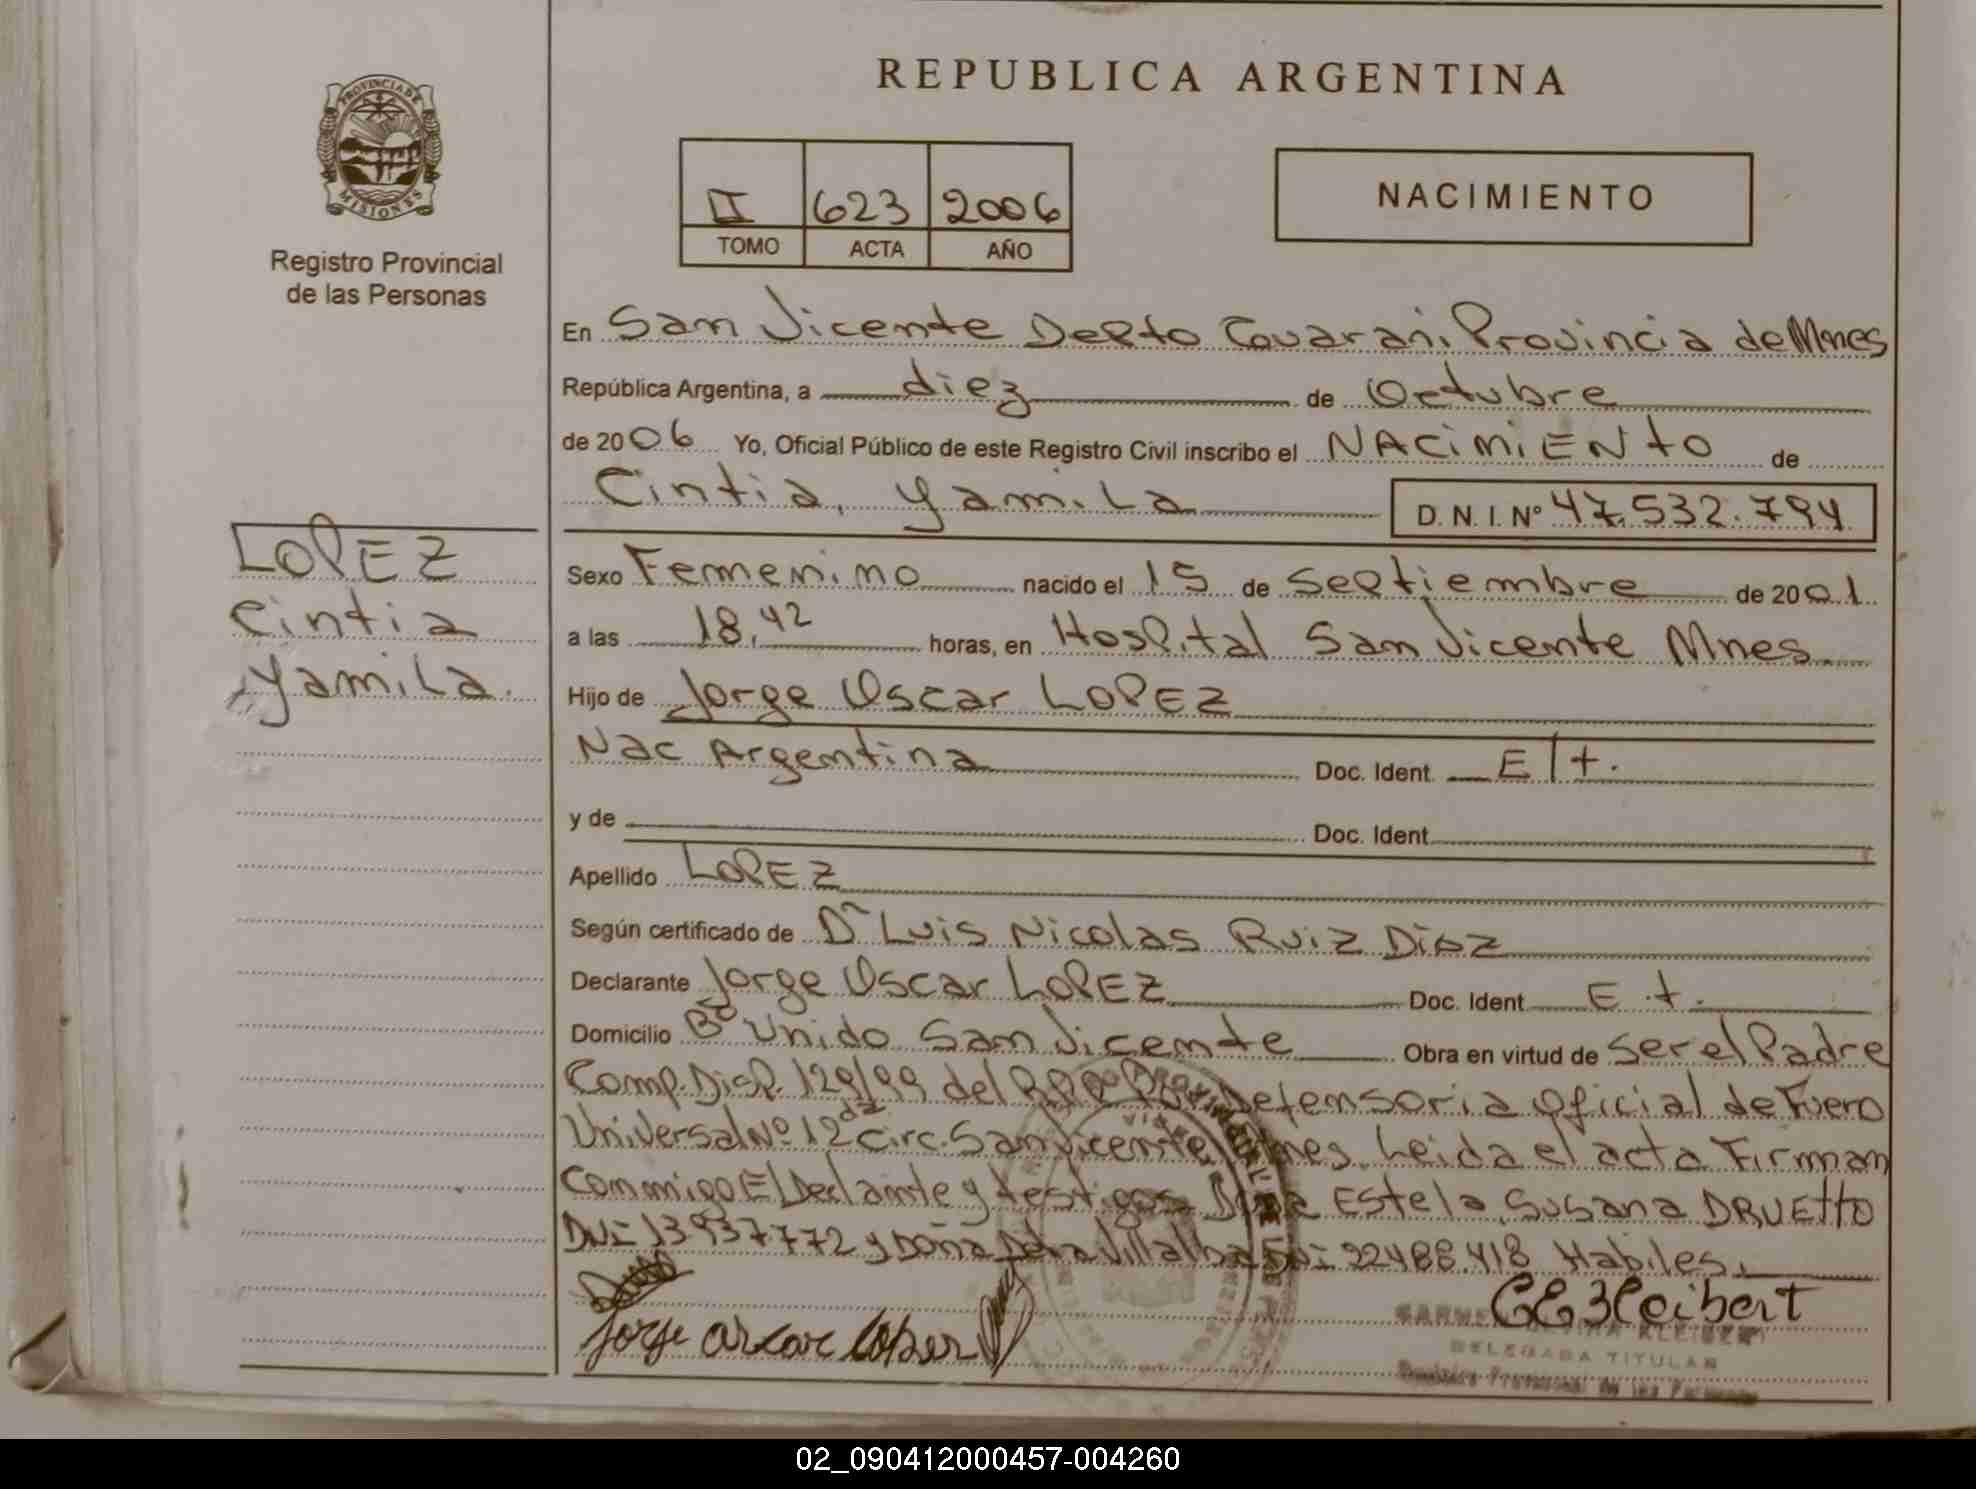 REPUBLICA ARGENTINA
PROVINCIA DE
MISIONES
Registro Provincial
de las Personas
II 623 2006
TOMO ACTA AÑO
NACIMIENTO
En San Vicente Depto Guaraní, Provincia de Mnes
República Argentina, a diez de Octubre
de 2006 Yo, Oficial Público de este Registro Civil inscribo el NACIMIENTO de
Cintia, Yamila D. N. I. Nº 47.532.794
LOPEZ
Cintia
Yamila.
Sexo Femenino nacido el 15 de Septiembre de 2001
a las 18,42 horas, en Hospital San Vicente Mnes
Hijo de Jorge Oscar LOPEZ
Nac Argentina Doc. Ident. E/t.
y de Doc. Ident.
Apellido LOPEZ
Según certificado de Dr Luis Nicolas Ruiz Diaz
Declarante Jorge Oscar LOPEZ Doc. Ident. E.t.
Domicilio Bº Unido San Vicente Obra en virtud de ser el Padre
Comp. Disp. 129/99 del Defensoria Oficial de Fuero
Universal Nº 1 2da Circ. San Vicente Mnes. Leida el acta Firman
Conmigo El Declarante y testigos Doña Estela Susana DRUETTO
DNI 13937772 y Doña Villalba DNI 22488.418 Habiles.
Jorge oscar lopez
DELEGADA TITULAR
Registro Provincial de las Personas
02_090412000457-004260